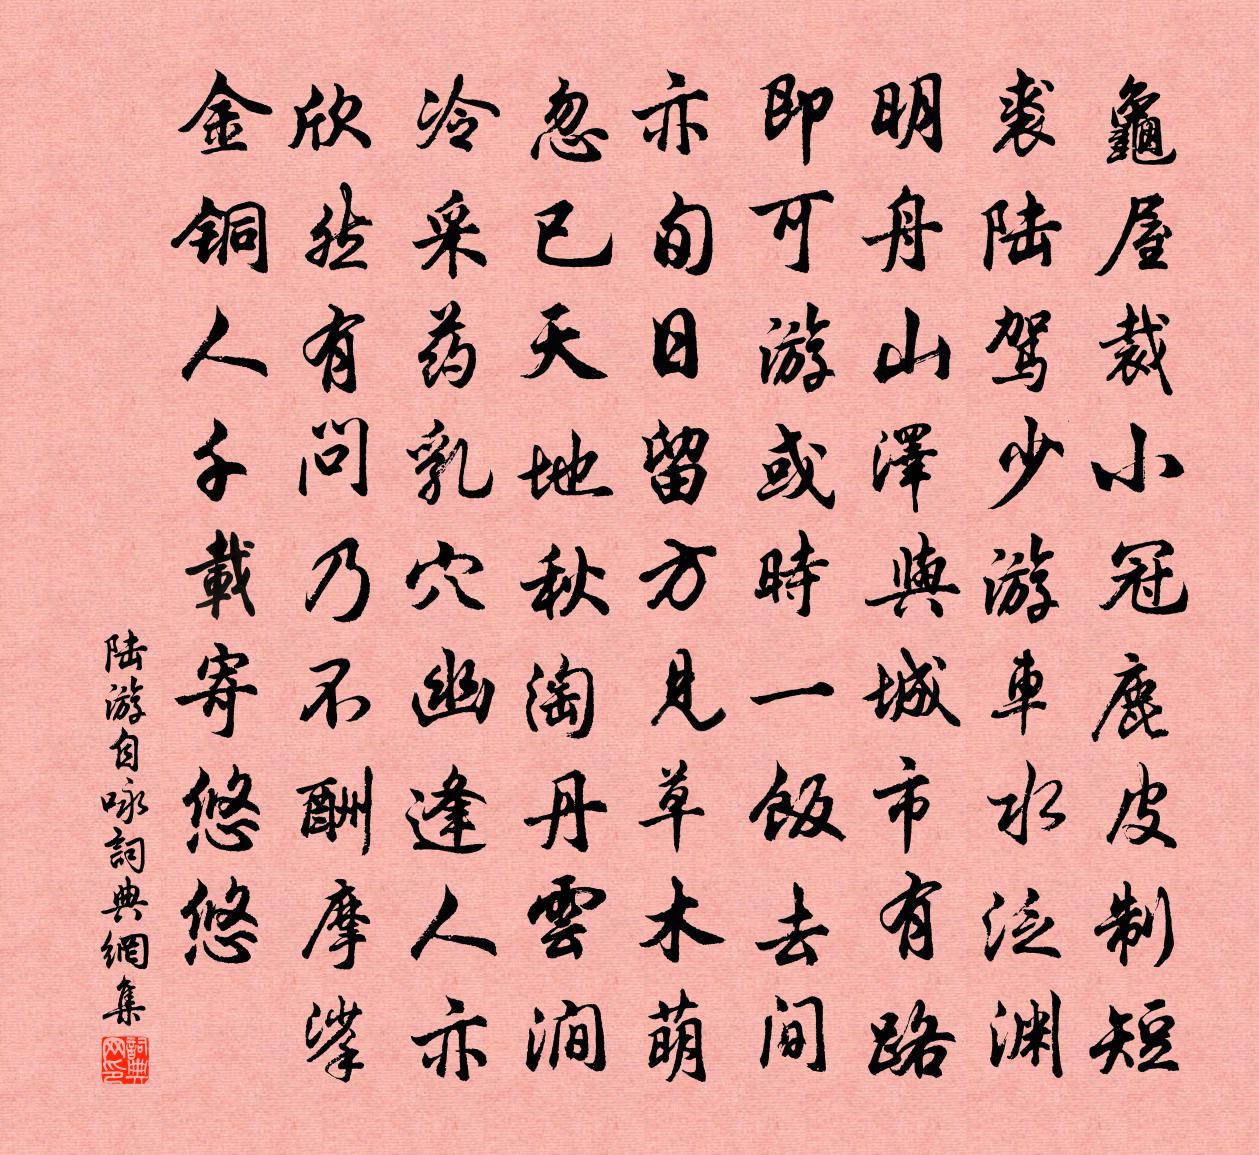 龜屋裁小冠鹿皮制短
裘陆驾少游車水泛渊
明舟山澤與城市有路
即可游或時一飯去间
亦旬日留方見草木萌
忽已天地秋淘丹雲涧
冷采药乳穴幽逢人亦
欣然有问乃不酬摩挲
金铜人千載寄悠悠
陆游自咏詞典網集
詞典网印